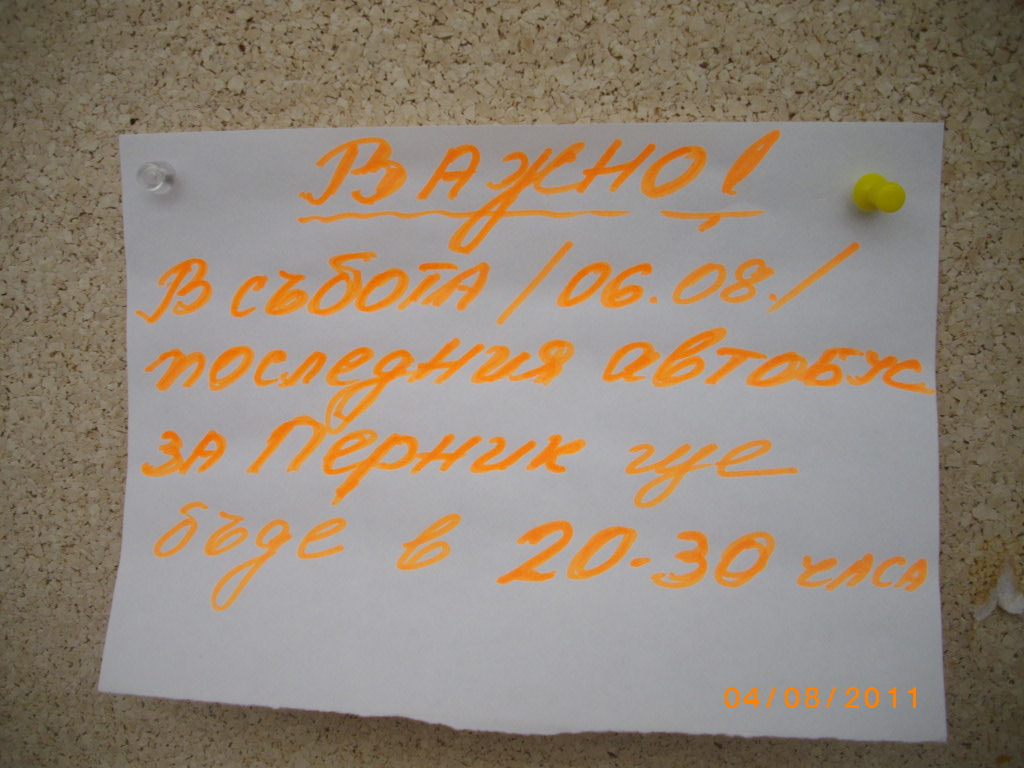 ВАЖНО!
В СЪБОТА /06.08./
последния автобус
за Перник ще
бъде в 20-30 ЧАСА
04/08/2011